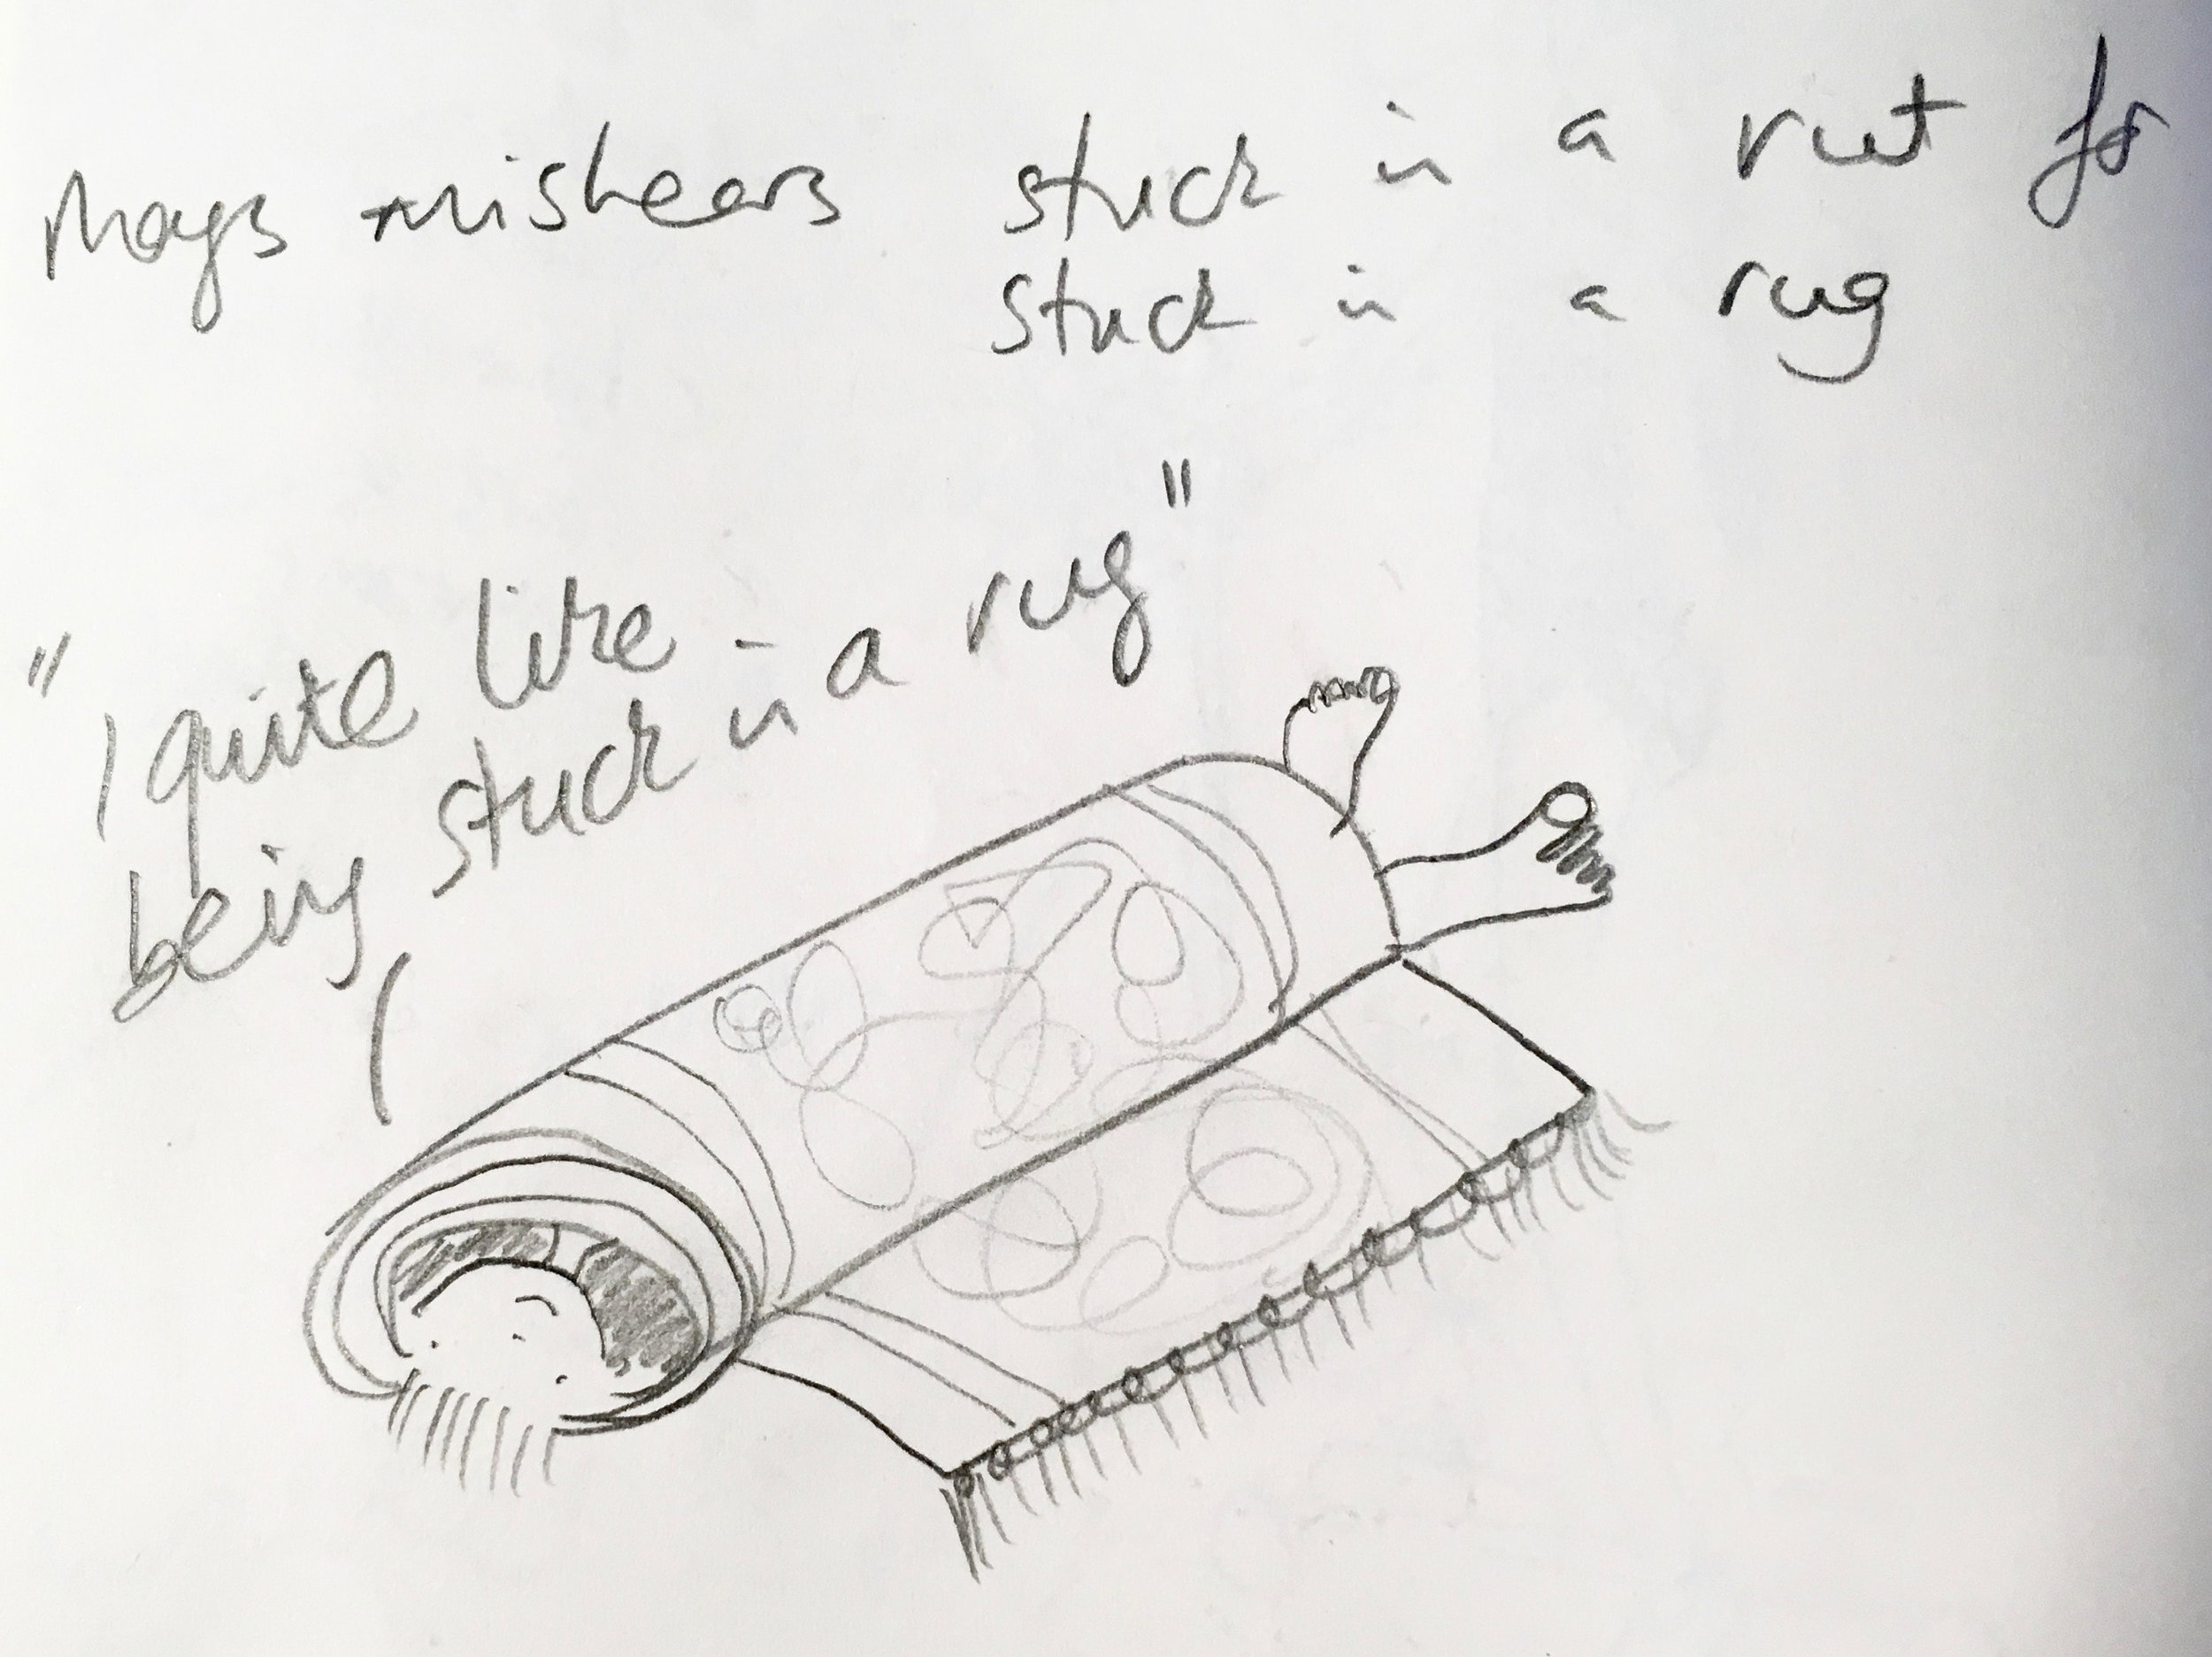 Mays mishears stuck in a rut for
stuck in a rug
"I quite like
being stuck in a rug"